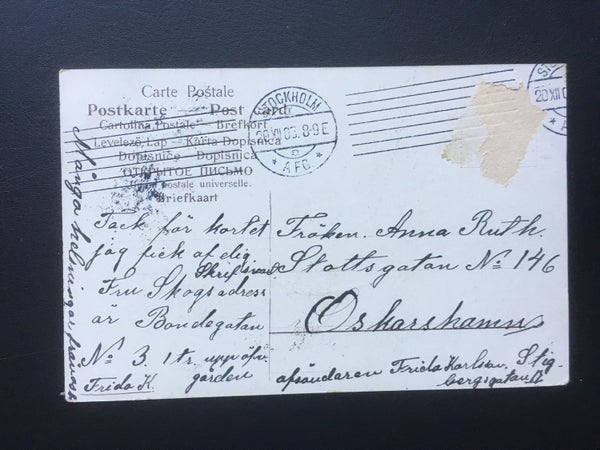 Carte Postale
Postkarte — Post card
Cartolina Postale — Brefkort
Levelező Lap — Karta Dopisnica
Dopisnice Dopisnica
ОТКРЫТОЕ ПИСЬМО
postale universelle.
Briefkaart
STOCKHOLM
8-9 E
AFG.
20 XII 0
Tack för kortet
jag fick af dig.
Skrif snart.
Fru Skogs adress
är Bondegatan
No 3. 1 tr. upp öfv.
gården
Frida K.
Många helsningar, från oss
Fröken. Anna Ruth.
Slottsgatan No 146
Oskarshamn
afsändaren Frida Karlson. Stig-
bergsgatan